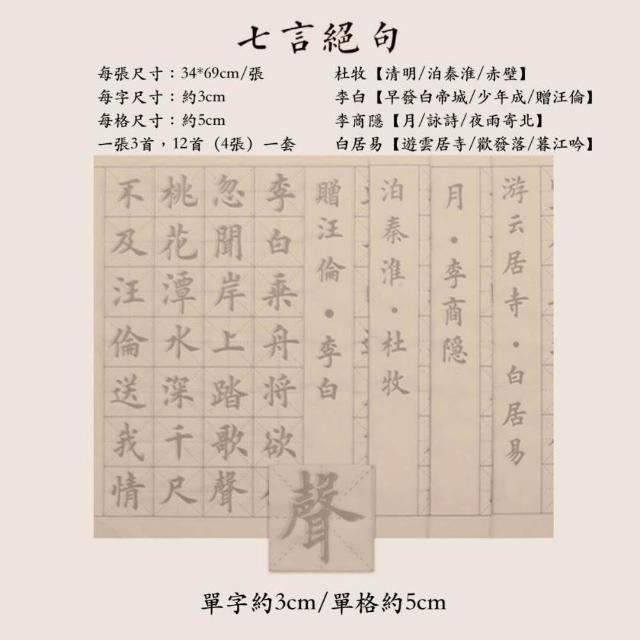 七言絕句
每張尺寸：34*69cm/張
每字尺寸：約3cm
每格尺寸：約5cm
一張3首，12首（4張）一套
杜牧【清明/泊秦淮/赤壁】
李白【早發白帝城/少年成/贈汪倫】
李商隱【月/詠詩/夜雨寄北】
白居易【遊雲居寺/歡發落/暮江吟】
游云居寺·白居易
月·李商隐
泊秦淮·杜牧
贈汪倫·李白
李白乘舟將欲
忽聞岸上踏歌聲
桃花潭水深千尺
不及汪倫送我情
聲
單字約3cm/單格約5cm